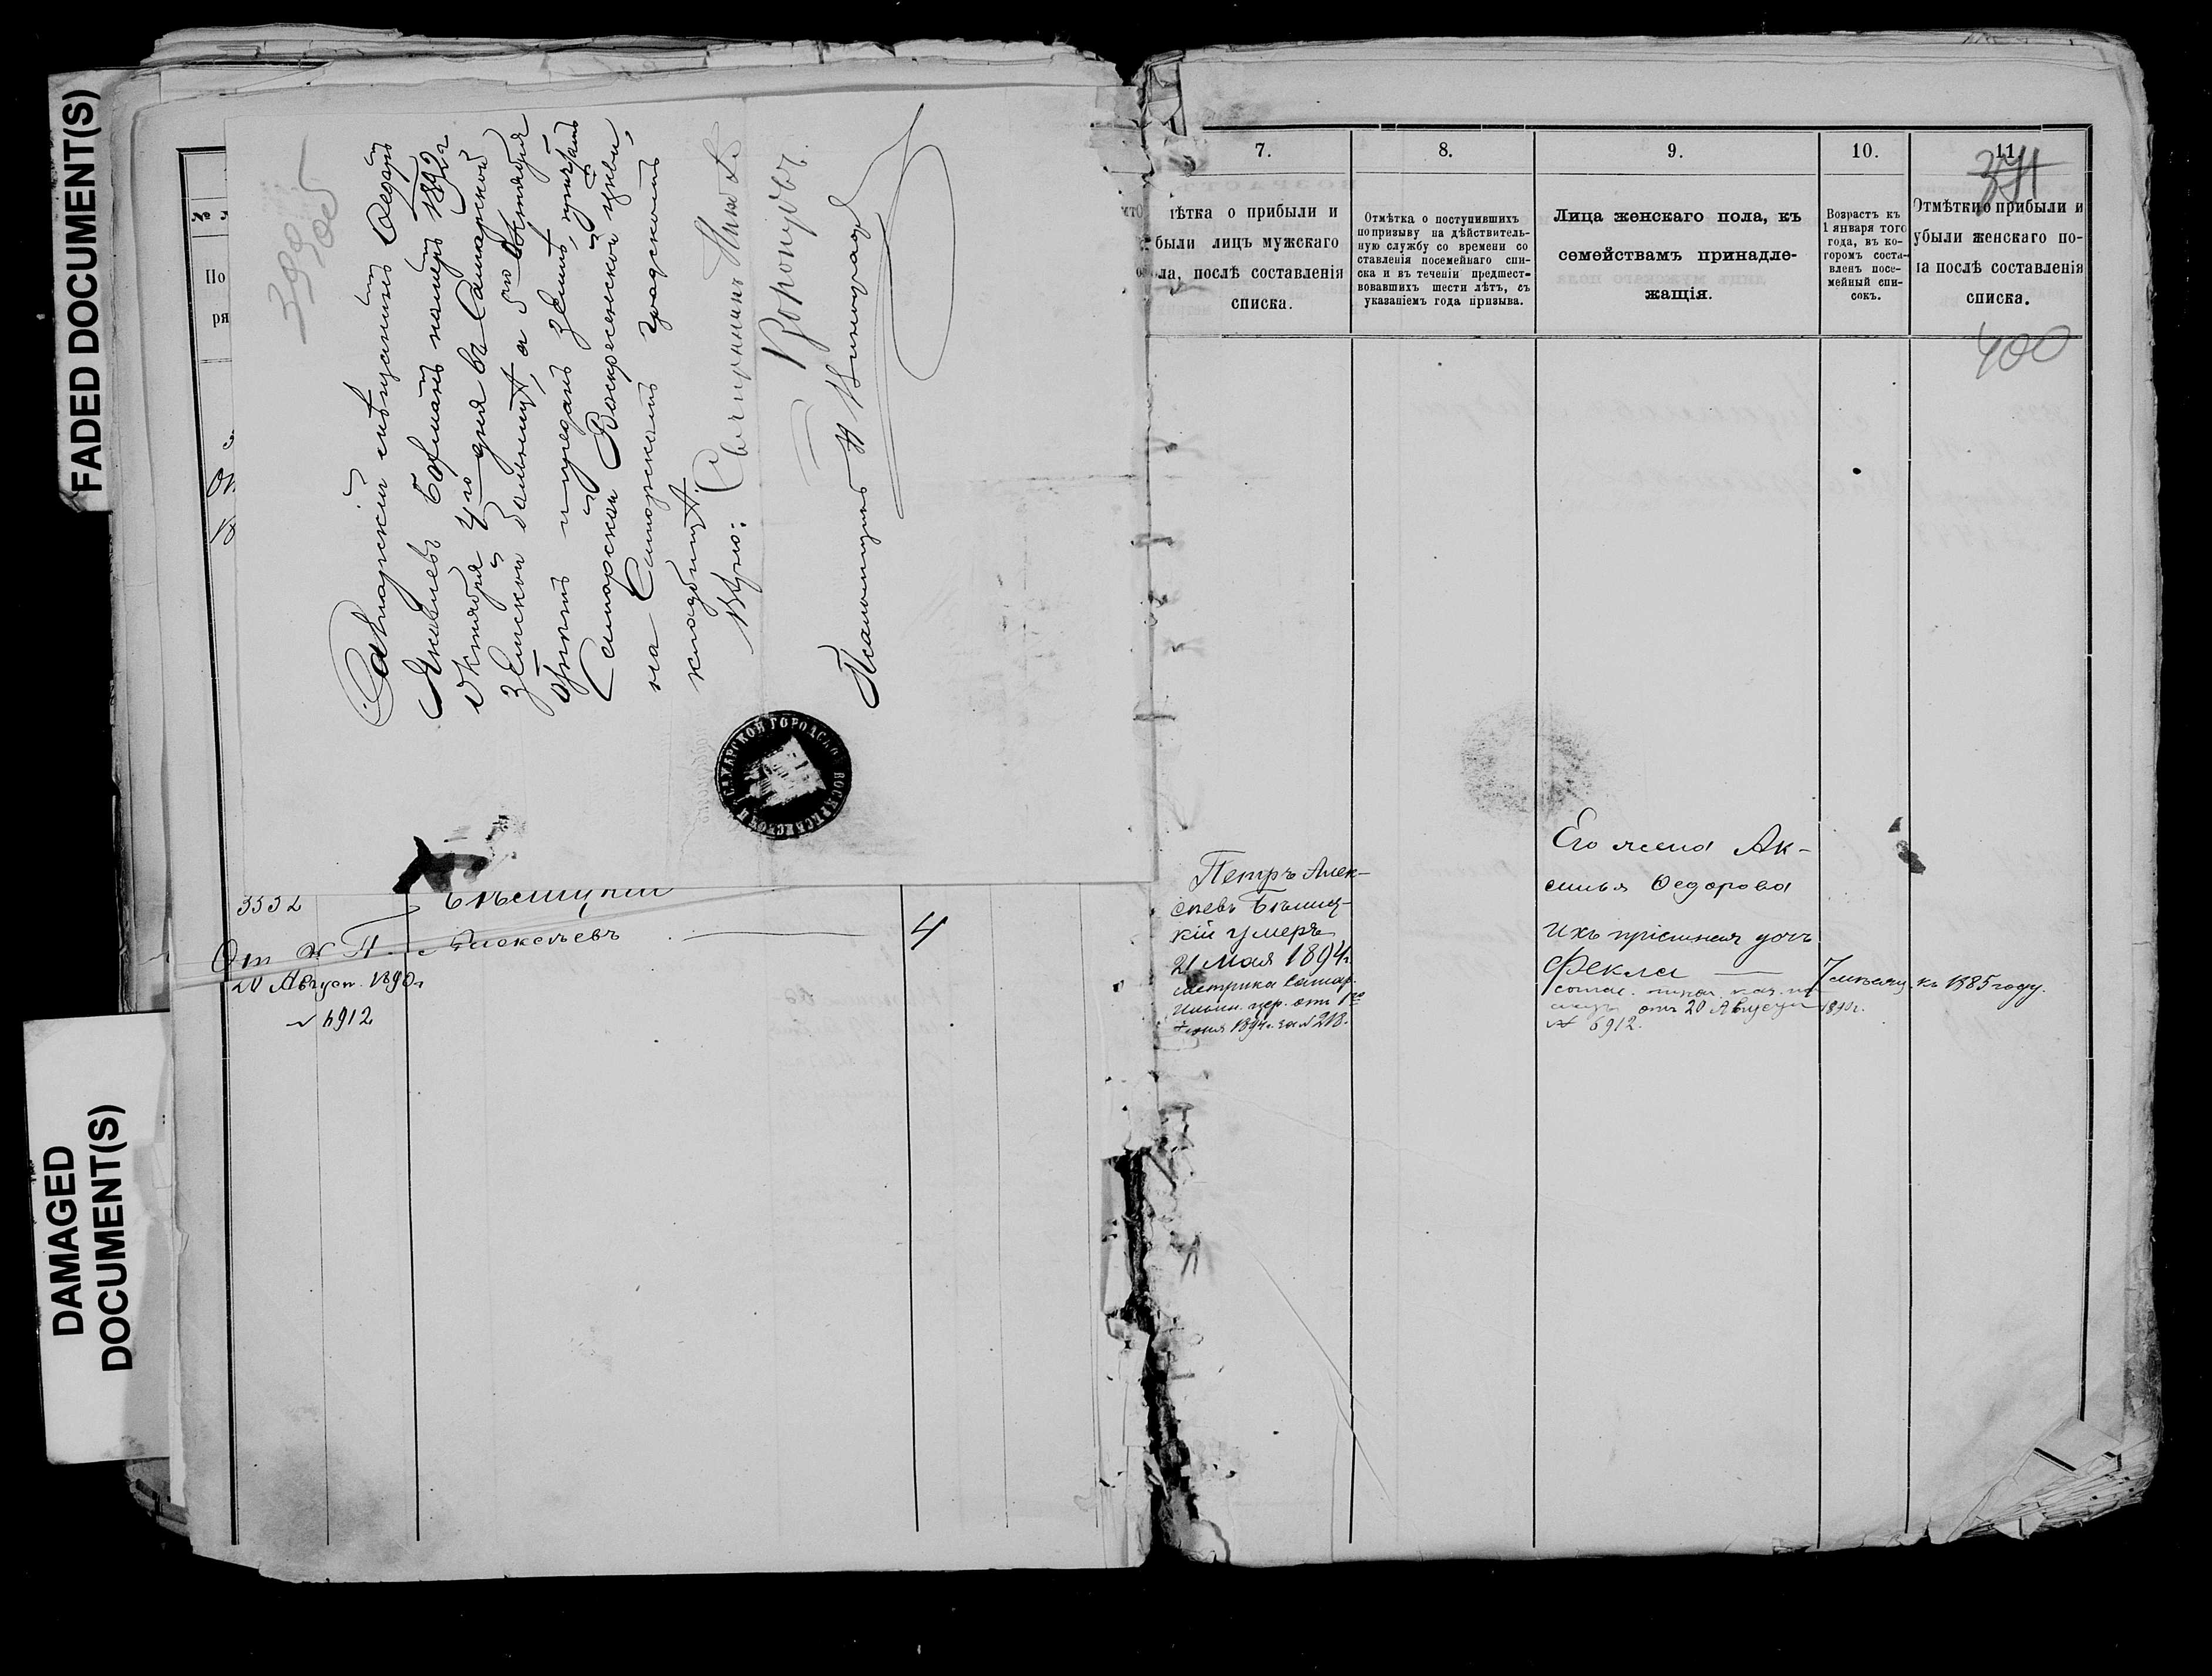 FADED DOCUMENT(S)
DAMAGED
DOCUMENT(S)
399 об
Самарскій мѣщанинъ Ѳедоръ
Яковлевъ померъ 1892 г
Октября 4го дня въ Самарской
Земской больницѣ, а 5го Октября
отпѣтъ и преданъ землѣ, причтомъ
Самарской Воскресенской церкви,
на Самарскомъ градскомъ
кладбищѣ.
Вѣрно: Священникъ
Воронцовъ.
Псаломщикъ Н Виноградовъ
САМАРСКОЙ ГОРОДСКОЙ ВОСКРЕСЕНСКОЙ Ц
По
ря
3532
Бѣлицкій
От К П Алексѣевъ
4
20 Август. 1890 г
№ 6912
7.
ѣтка о прибыли и
были лицъ мужскаго
ла, послѣ составленія
списка.
8.
Отмѣтка о поступившихъ
по призыву на дѣйствитель-
ную службу со времени со
ставленія посемейнаго спи-
ска и въ теченіи предшест-
вовавшихъ шести лѣтъ, съ
указаніемъ года призыва.
9.
Лица женскаго пола, къ
семействамъ принадле-
жащія.
10.
Возрастъ къ
1 января того
года, въ ко-
горомъ соста-
вленъ посе-
мейный спи-
сокъ.
11.
371
Отмѣтки о прибыли и
убыли женскаго по-
ла послѣ составленія
списка.
400
Петръ Алек-
сѣевъ Бѣлиц-
кій умеръ
21 Мая 1894 г.
метрика Самар.
Ильин. цер. от 1го
Іюня 1894 г. за № 218.
Его жена Ак-
синья Ѳедорова
Ихъ пріемная дочь
Фекла 7 мѣсяц. къ 1885 году.
от 20 Августа 1890 г.
№ 6912.